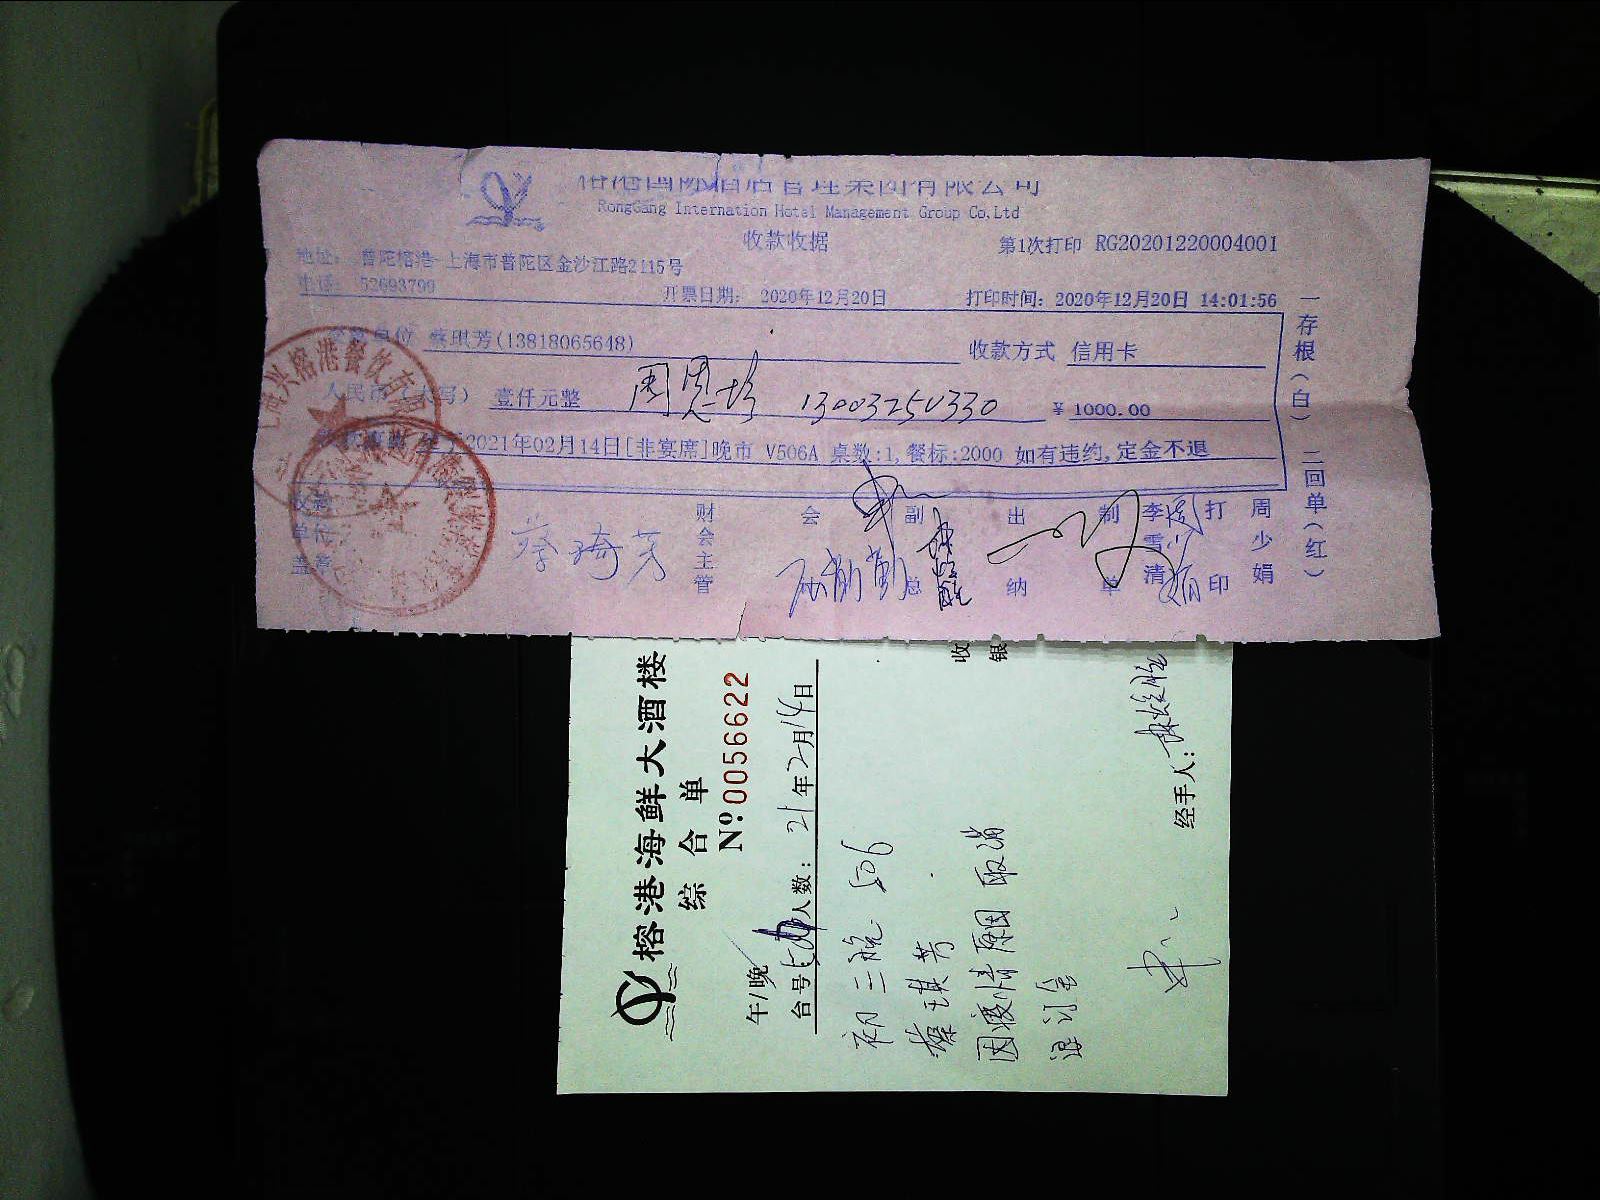 榕港国际酒店管理集团有限公司
RongGang Internation Hotel Management Group Co.Ltd
收款收据
第1次打印 RG20201220004001
地址: 普陀榕港-上海市普陀区金沙江路2115号
电话: 52693799
开票日期: 2020年12月20日
打印时间: 2020年12月20日 14:01:56
单位 蔡琪芳(13818065648)
收款方式 信用卡
人民币(大写) 壹仟元整
周恩 13003250330
¥ 1000.00
2021年02月14日[非宴席]晚市 V506A 桌数:1,餐标:2000 如有违约,定金不退
收款单位盖章
蔡琦芳
财会主管
会
副总
出纳
制单
李雪清
打印
周少娟
一存根(白) 二回单(红)
榕港餐饮有
榕港海鲜大酒楼
综合单
Nº:0056622
午/晚
台号 人数: 21年2月14日
初三晚 506
蔡琪芳
因疫情原因 取消
退订金
收银
经手人: